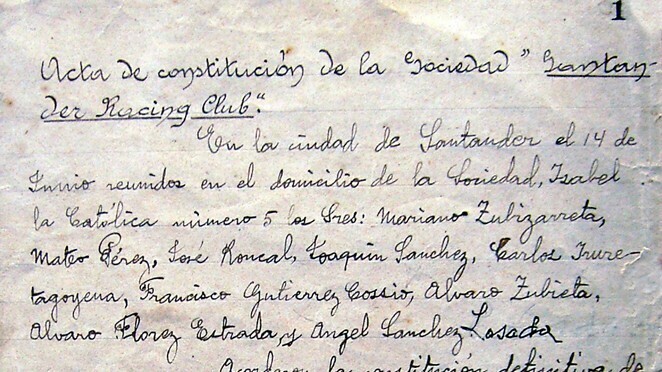 1
Acta de constitución de la Sociedad "Santan-
der Racing Club".
En la ciudad de Santander el 14 de
Junio reunidos en el domicilio de la Sociedad, Isabel
la Católica número 5 los Sres: Mariano Zubizarreta,
Mateo Pérez, José Roncal, Joaquín Sanchez, Carlos Irure-
tagoyena, Francisco Gutierrez Cossio, Alvaro Zubieta,
Alvaro Florez Estrada, y Angel Sanchez Losada
Acordaron la constitución definitiva de